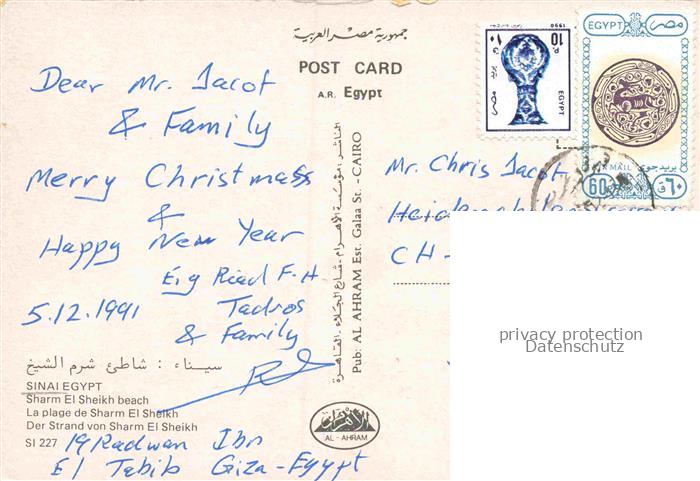 جمهورية مصر العربية
POST CARD
A.R. Egypt
Dear Mr. Jacot
& Family
Merry Christmass
&
Happy New Year
Eig Riad F.H
Tadros
& Family
5.12.1991
سيناء : شاطئ شرم الشيخ
SINAI EGYPT
Sharm El Sheikh beach
La plage de Sharm El Sheikh
Der Strand von Sharm El Sheikh
SI 227
19 Radwan Ibn
El Tabib Giza-Egypt
الناشر : مؤسسة الأهرام - شارع الجلاء - القاهرة
Pub: AL AHRAM Est. Galaa St. - CAIRO
الأهرام
AL - AHRAM
1990
10
١٠
مصر
EGYPT
EGYPT مصر
AIR MAIL بريد جوى
60 ٦٠
Mr. Chris Jacot
CH-
privacy protection
Datenschutz